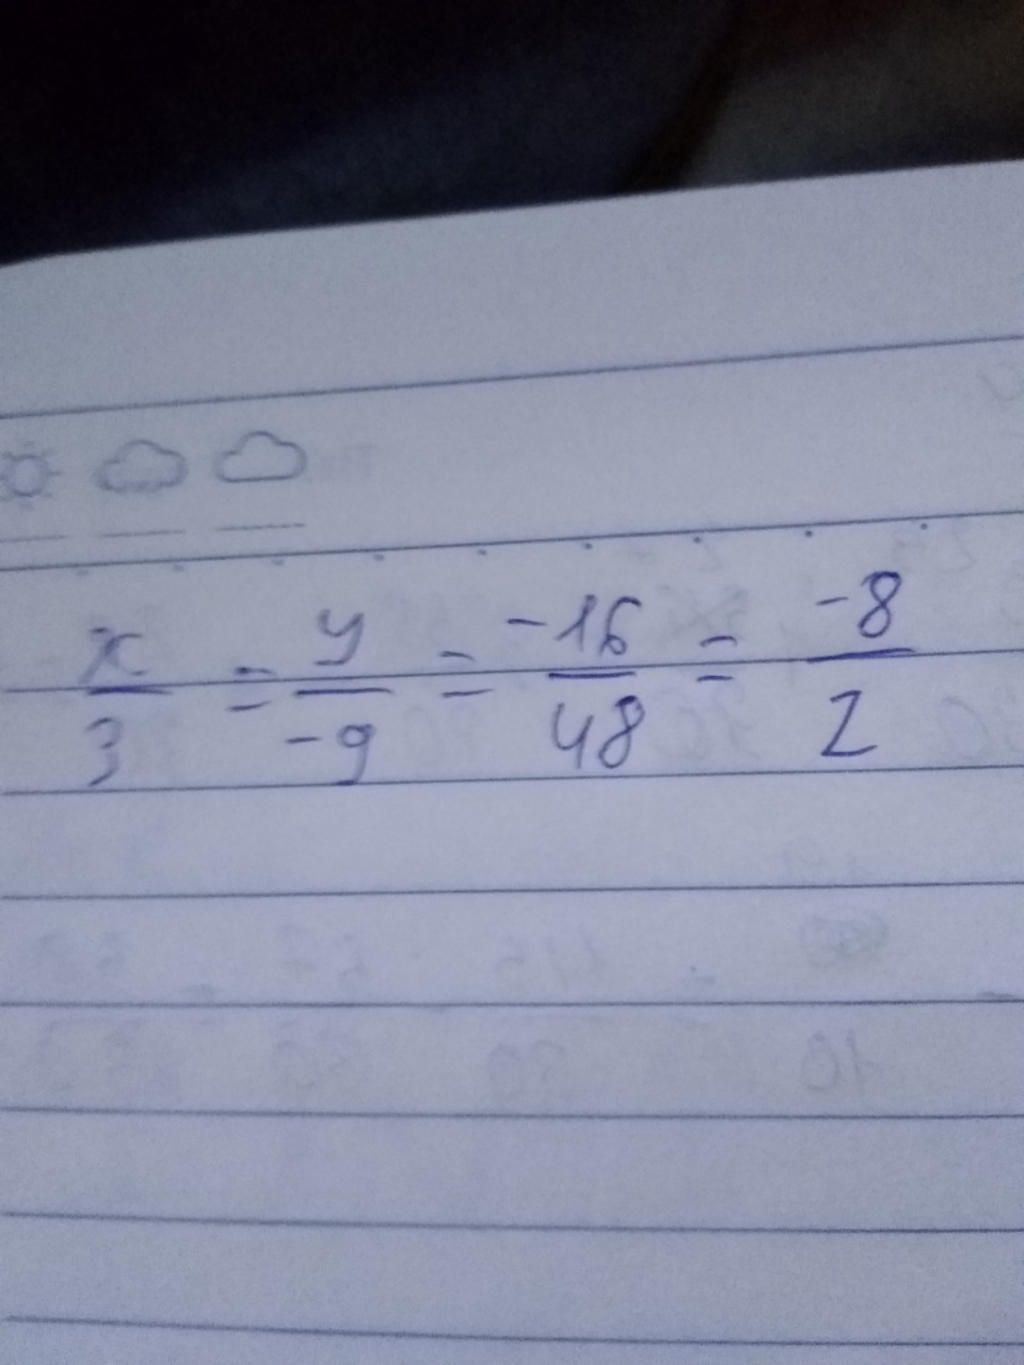 x/3 = y/-9 = -16/48 = -8/z